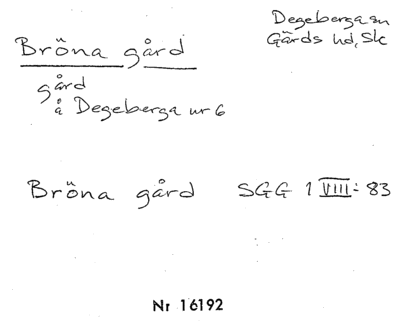 Degeberga sn
Gärds hd, Sk
Bröna gård
gård
å Degeberga nr 6
Bröna gård SGG 1 VIII: 83
Nr 16192